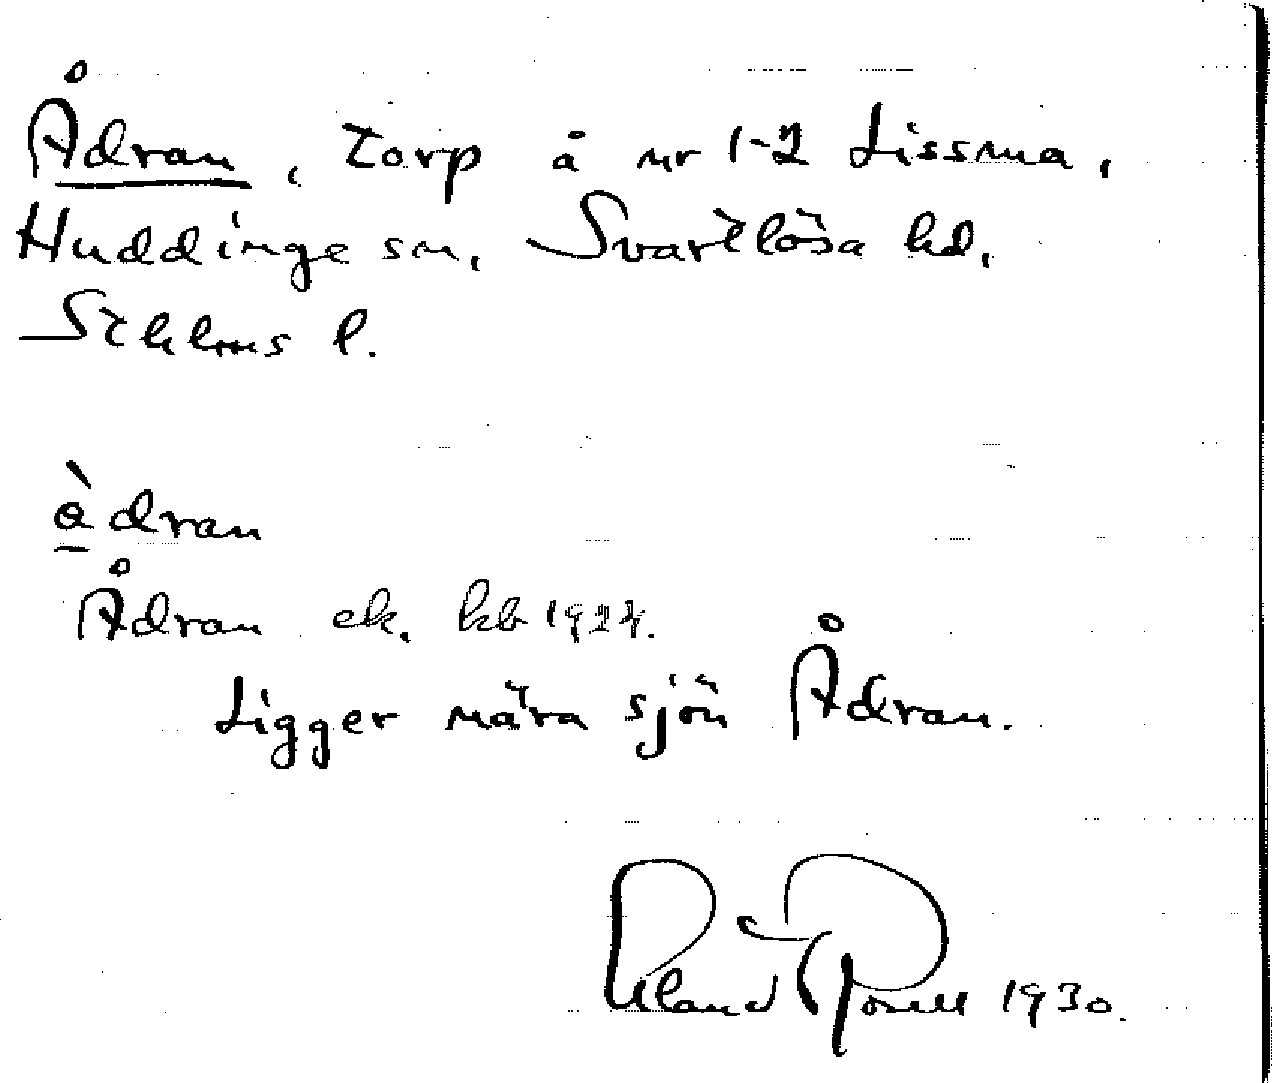 Ådran, torp å nr 1-2 Lissma,
Huddinge sn, Svartlösa hd,
Sthlms l.
å̀dran
Ådran ek. kb 1924.
Ligger nära sjön Ådran.
1930.